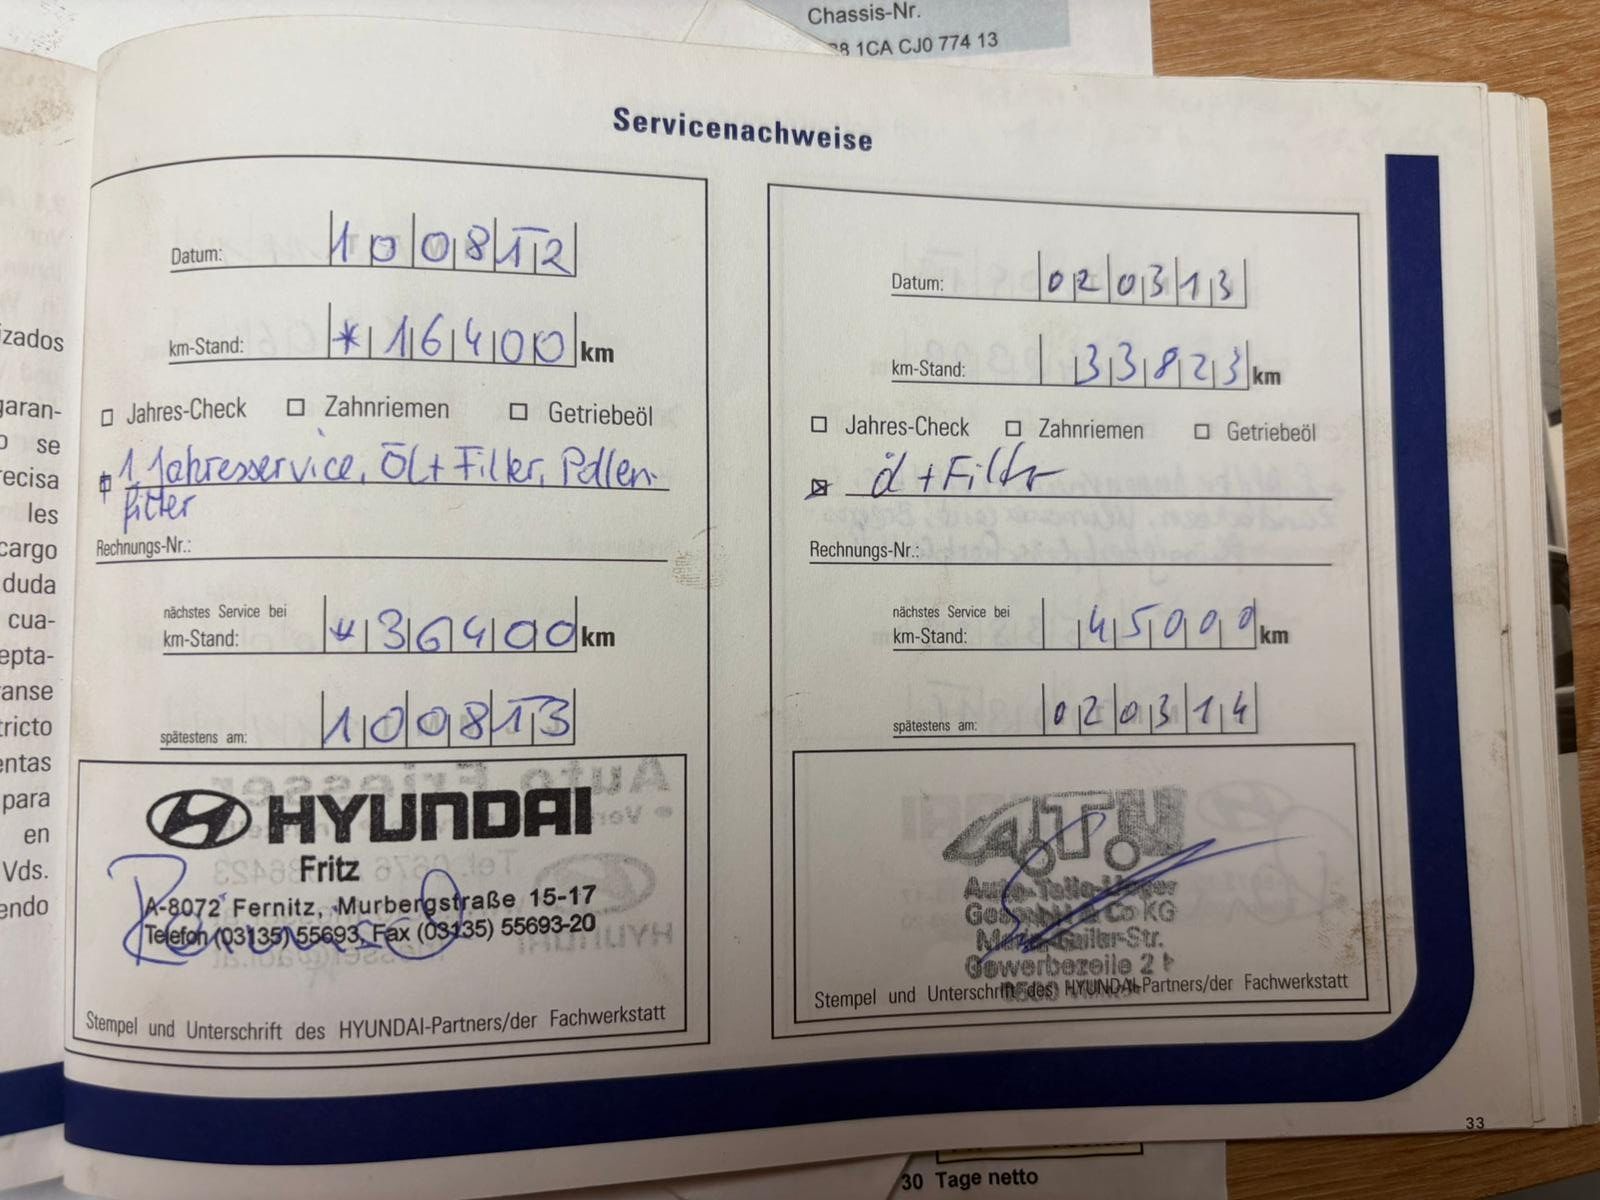 Chassis-Nr.
1CA CJ0 774 13
Servicenachweise
Datum: 100812
km-Stand: *16400 km
Jahres-Check Zahnriemen Getriebeöl
1. Jahresservice, Öl + Filter, Pollen-
filter
Rechnungs-Nr.:
nächstes Service bei
km-Stand: *36400 km
spätestens am: 100813
HYUNDAI
Fritz
A-8072 Fernitz, Murbergstraße 15-17
Telefon (03135) 55693, Fax (03135) 55693-20
Stempel und Unterschrift des HYUNDAI-Partners/der Fachwerkstatt
Datum: 020313
km-Stand: 33823 km
Jahres-Check Zahnriemen Getriebeöl
Öl + Filter
Rechnungs-Nr.:
nächstes Service bei
km-Stand: 45000 km
spätestens am: 020314
ATU
Auto-Teile-Unger
GesmbH & Co KG
Gewerbezeile 2
Stempel und Unterschrift des HYUNDAI-Partners/der Fachwerkstatt
33
30 Tage netto
izados
garan-
se
recisa
les
cargo
duda
cua-
epta-
anse
tricto
entas
para
en
Vds.
endo